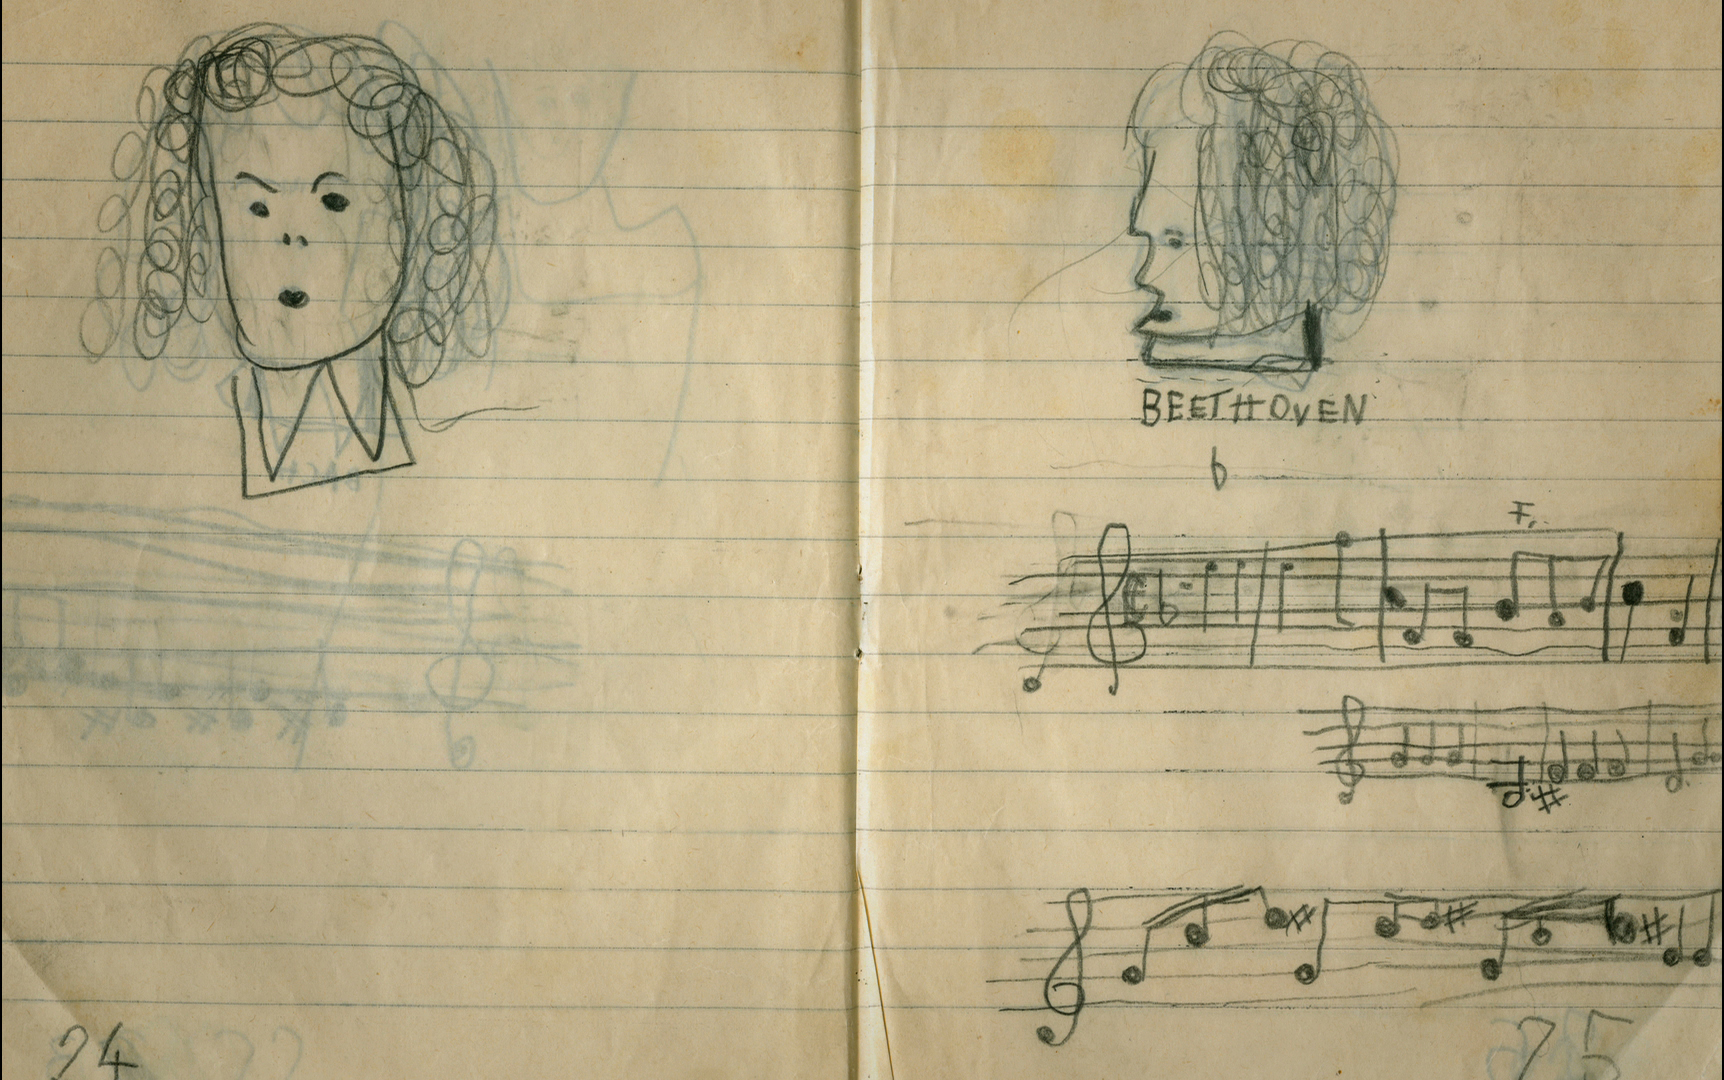 BEETHOVEN
b
F.
24
25